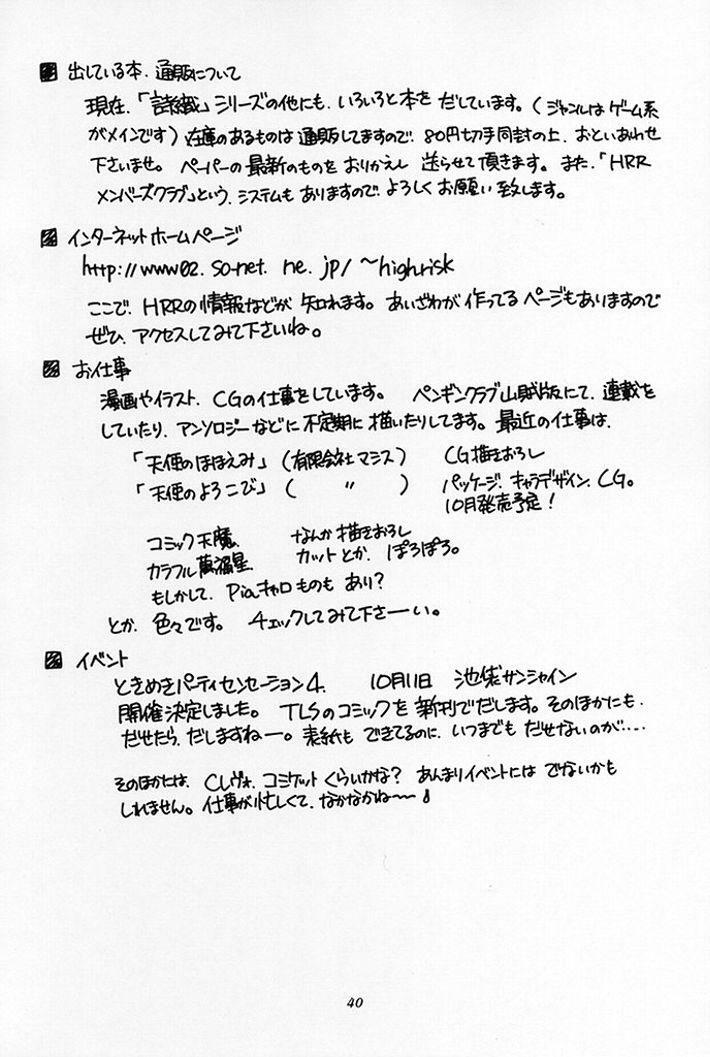 出している本、通販について
現在、「諸織」シリーズの他にも、いろいろと本を だしています。(ジャンルは ゲーム系
がメインです) 在庫のあるものは 通販してますので、80円切手同封の上、おといあわせ
下さいませ。 ペーパーの最新のものを おりかえし 送らせて頂きます。また、「HRR
メンバーズクラブ」という、システムも ありますので、よろしく お願い 致します。
インターネットホームページ
http://www02.so-net.ne.jp/~highrisk
ここで、HRRの情報などが 知れます。あいざわが 作ってる ページもありますので
ぜひ、アクセスしてみて下さいね。
お仕事
漫画やイラスト、CGの仕事をしています。 ペンギンクラブ山賊版にて、連載を
していたり、アンソロジーなどに 不定期に 描いたりしてます。最近の仕事は、
「天使のほほえみ」(有限会社マシス) CG描きおろし
「天使のよろこび」( 〃 ) パッケージ、キャラデザイン、CG。
10月発売予定!
コミック天魔、 なんか描きおろし
カラフル萬福星、 カットとか、ぽろぽろ。
もしかして、Piaキャロものも あり?
とか、色々です。 チェックしてみて下さーい。
イベント
ときめきパーティセンセーション4、 10月11日 池袋サンシャイン
開催決定しました。 TLSのコミックを 新刊でだします。そのほかにも、
だせたら、だしますねー。表紙も できてるのに、いつまでも だせないのが‥‥
そのほかには、Cレヴォ、コミケット くらいかな? あんまりイベントには でないかも
しれません。仕事が忙しくて、なかなかね〜〜
40